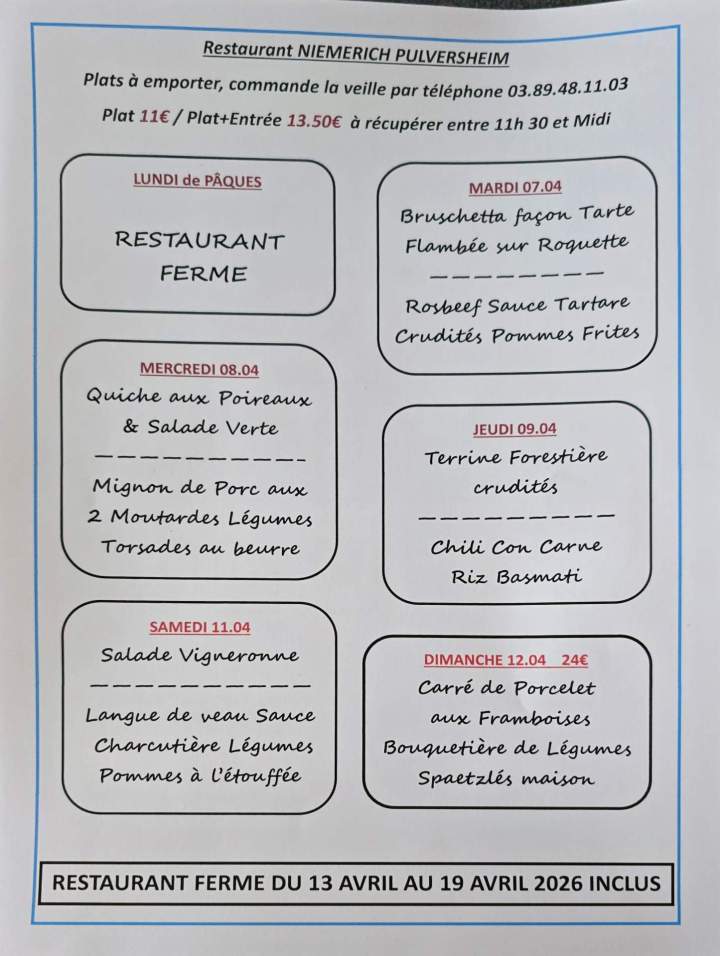 Restaurant NIEMERICH PULVERSHEIM
Plats à emporter, commande la veille par téléphone 03.89.48.11.03
Plat 11€ / Plat+Entrée 13.50€ à récupérer entre 11h 30 et Midi
LUNDI de PÂQUES
RESTAURANT
FERME
MARDI 07.04
Bruschetta façon Tarte
Flambée sur Roquette
Rosbeef Sauce Tartare
Crudités Pommes Frites
MERCREDI 08.04
Quiche aux Poireaux
& Salade Verte
Mignon de Porc aux
2 Moutardes Légumes
Torsades au beurre
JEUDI 09.04
Terrine Forestière
crudités
Chili Con Carne
Riz Basmati
SAMEDI 11.04
Salade Vigneronne
Langue de veau Sauce
Charcutière Légumes
Pommes à l'étouffée
DIMANCHE 12.04 24€
Carré de Porcelet
aux Framboises
Bouquetière de Légumes
Spaetzlés maison
RESTAURANT FERME DU 13 AVRIL AU 19 AVRIL 2026 INCLUS